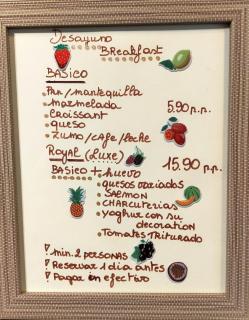 Desayuno
Breakfast
BASICO
Pan/mantequilla
mazmelada
croissant
queso
zumo/cafe/leche
5.90 p.p.
Royal (Luxe)
15.90 p.p.
BASICO + huevo
quesos variados
SALMON
CHARCUTERIAS
yoghur con su
decoration
Tomates Triturado
min. 2 personas
Reservar 1 dia antes
Pagar en efectivo